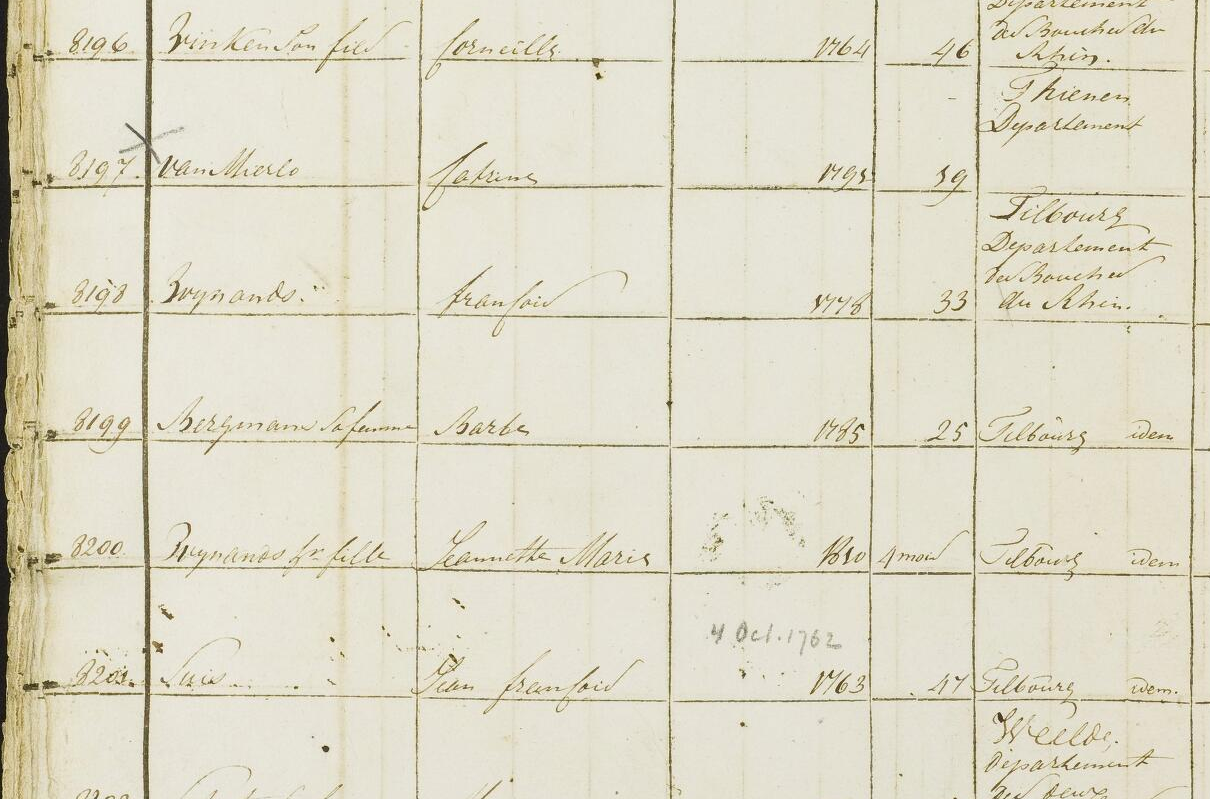 Departement
des Bouches du
8196 Vinken Son fils Corneille 1764 46 Rhin.
Thienen
Departement
8197. van Mierlo Catrine 1791 19
Tilbourg
Departement
des Bouches
8198 Wynands. francois 1778 33 du Rhin.
8199 Bergmans Sa femme Barbe 1785 25 Tilbourg idem
8200 Wynands fille Jeannette Marie 1810 4 mois Tilbourg idem
4 Oct. 1762
8201. Suis Jean francois 1763 47 Tilbourg idem.
Weelde,
departement
des deux